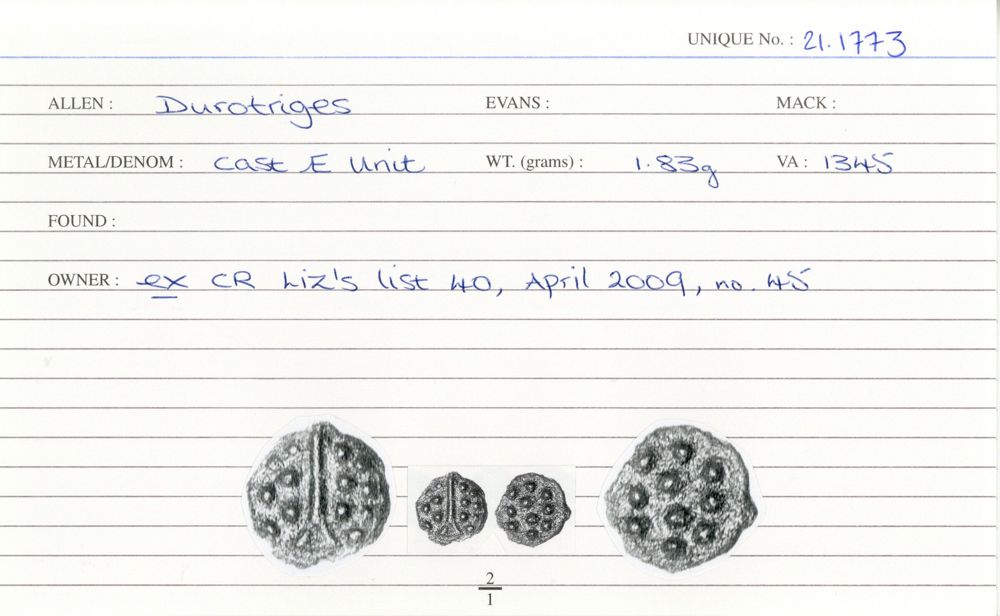 UNIQUE No. : 21.1773
ALLEN : Durotriges EVANS : MACK :
METAL/DENOM : cast Æ Unit WT. (grams) : 1.83g VA : 1345
FOUND :
OWNER : ex CR Liz's list 40, April 2009, no. 45
2
1